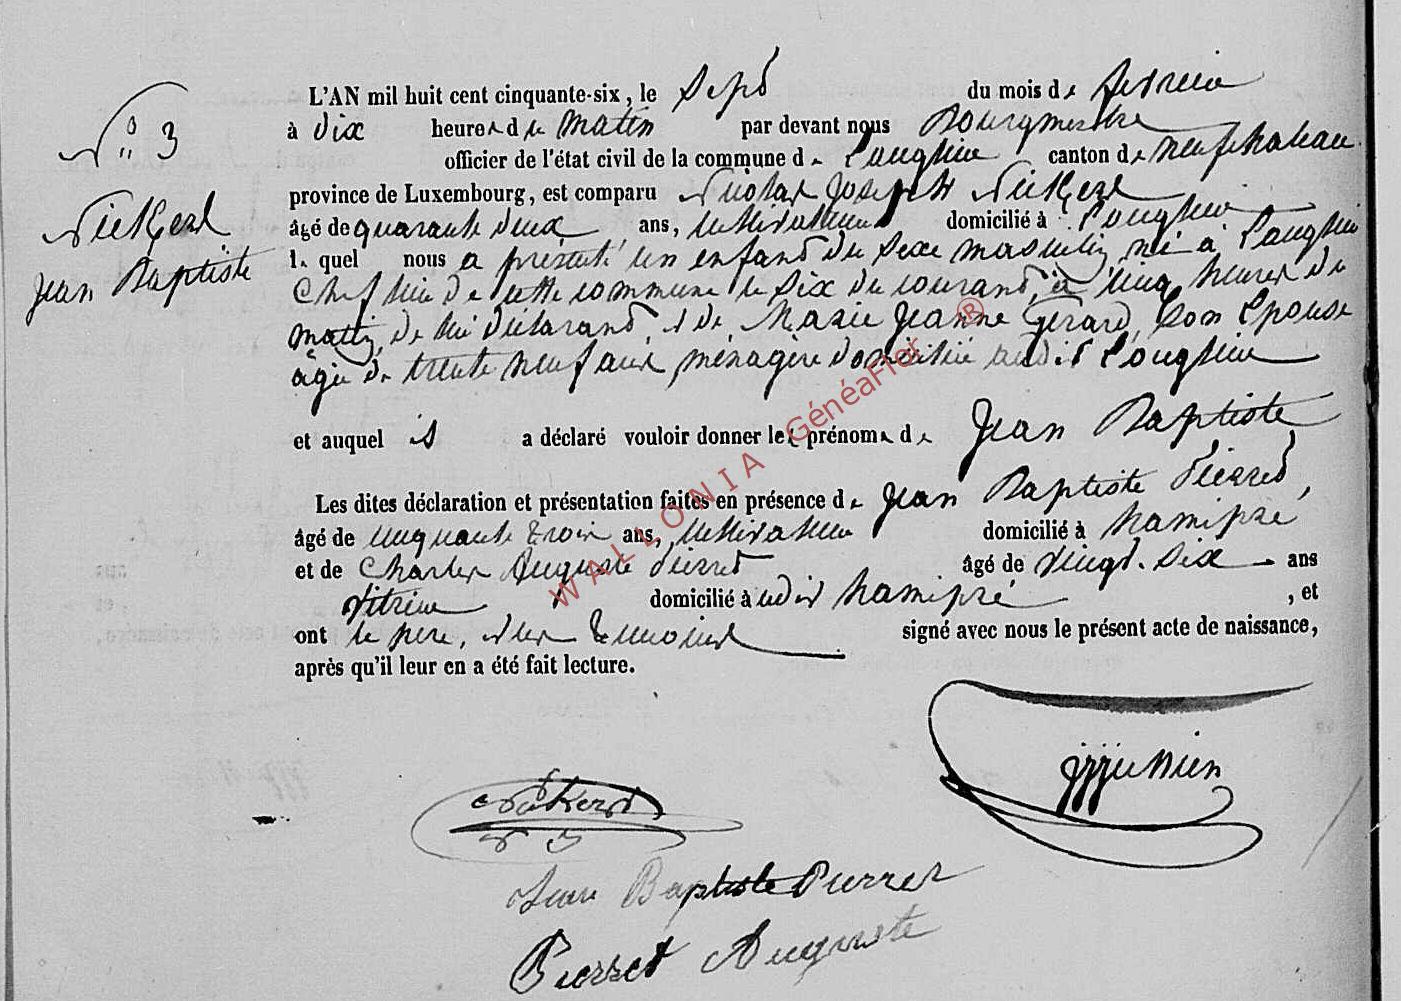 N° 3
Nickers
Jean Baptiste
L'AN mil huit cent cinquante-six, le Sept du mois de fevrier
à dix heures du matin par devant nous Bourgmestre
officier de l'état civil de la commune de Longlier canton de neufchateau
province de Luxembourg, est comparu Nicolas Joseph Nickers
âgé de quarante deux ans, cultivateur domicilié à Longlier
le quel nous a présenté un enfant du sexe masculin, né à Longlier
Chef lieu de cette commune le six du courant, à cinq heures du
matin, de lui déclarant et de Marie Jeanne Gerard, son Epouse
âgée de trente neuf ans, ménagère domiciliée audit Longlier
et auquel il a déclaré vouloir donner les prénoms de Jean Baptiste
Les dites déclaration et présentation faites en présence de Jean Baptiste Pierret,
âgé de cinquante trois ans, cultivateur domicilié à hamipré
et de Charles Auguste Pierret âgé de vingt-six ans
domicilié audit hamipré, et
ont le père, et les témoins signé avec nous le présent acte de naissance,
après qu'il leur en a été fait lecture.
Nickers
N J
Jean Baptiste Pierret
Pierret Auguste
WALLONIA GénéaFlor ®